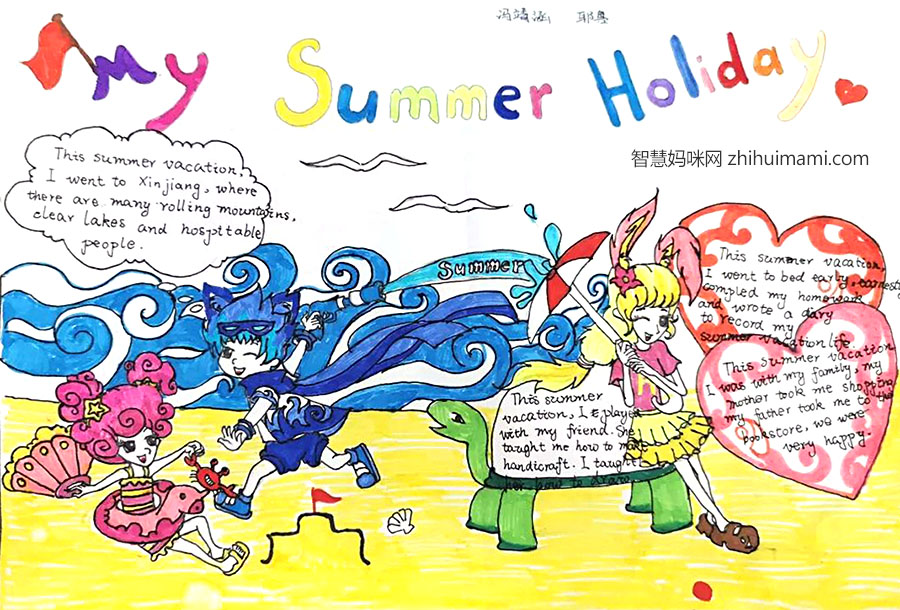 冯靖涵
My Summer Holiday
智慧妈咪网 zhihuimami.com
This summer vacation,
I went to Xinjiang, where
there are many rolling mountains,
clear lakes and hospttable
people.
Summer
This summer vacation,
I went to bed early, earnesty
compled my homework
and wrote a dary
to record my
summer vacation life
This summer vacation
I was with my family, my
mother took me shopping
my father took me to the
bookstore, we were
very happy.
This summer
vacation, I played
with my friend. She
taught me how to make
handicraft. I taught
her how to draw